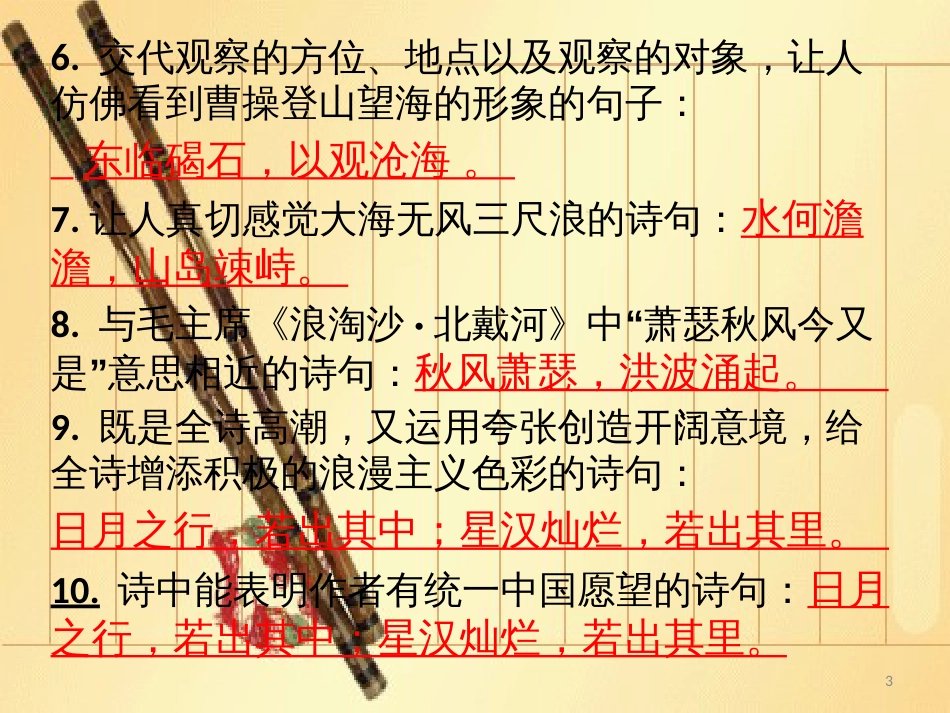 6. 交代观察的方位、地点以及观察的对象，让人
仿佛看到曹操登山望海的形象的句子：
东临碣石，以观沧海 。
7. 让人真切感觉大海无风三尺浪的诗句：水何澹
澹，山岛竦峙。
8. 与毛主席《浪淘沙 · 北戴河》中“萧瑟秋风今又
是”意思相近的诗句：秋风萧瑟，洪波涌起。
9. 既是全诗高潮，又运用夸张创造开阔意境，给
全诗增添积极的浪漫主义色彩的诗句：
日月之行，若出其中；星汉灿烂，若出其里。
10. 诗中能表明作者有统一中国愿望的诗句：日月
之行，若出其中；星汉灿烂，若出其里。
3